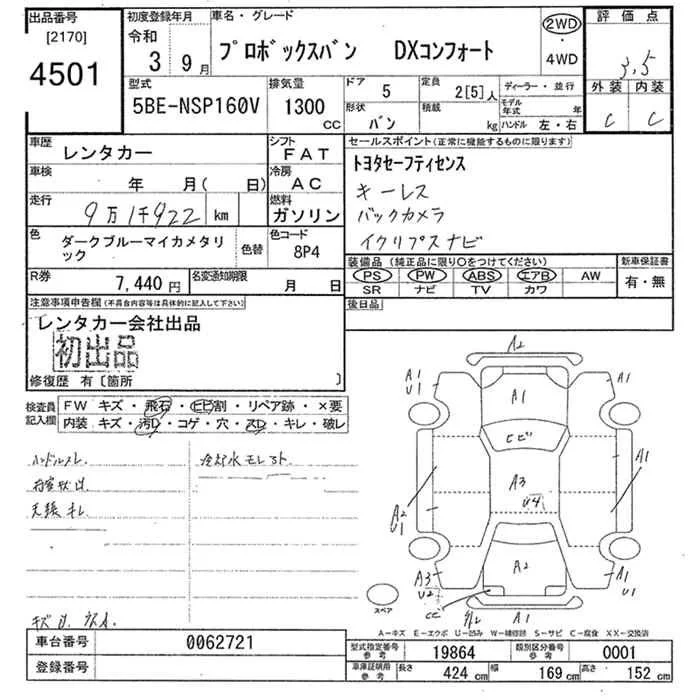 出品番号
[2170]
4501
初度登録年月
令和
3 9月
車名・グレード
プロボックスバン DXコンフォート
2WD
・
4WD
評価点
3.5
外装 内装
C C
型式
5BE-NSP160V
排気量
1300
CC
ドア
5
定員
2[5]人
形状
バン
積載
kg
ディーラー・並行
モデル年式 年
ハンドル 左・右
車歴
レンタカー
シフト
FAT
車検
年 月( 日)
冷房
AC
走行
9万1千922 km
燃料
ガソリン
色
ダークブルーマイカメタリック
色替
色コード
8P4
R券
7,440円
名変通知期限
月 日
セールスポイント(正常に機能するものに限ります)
トヨタセーフティセンス
キーレス
バックカメラ
イクリプスナビ
装備品(純正品に限り○をつけてください)
PS PW ABS エアB AW
SR ナビ TV カワ
新車保証書
有・無
後日品
注意事項申告欄(不具合内容等は具体的に記入して下さい)
レンタカー会社出品
初出品
修復歴 有〔箇所 〕
検査員記入欄
FW キズ・飛石・ヒビ割・リペア跡・×要
内装 キズ・汚D・コゲ・穴・スD・キレ・破レ
ハンドルスレ
冷却水モレ
天張キレ
A2
A1
U1
A1
A1
ヒビ
A3
U4
A1
A2
U1
A3
U2
A2
A1
U1
CC
スペア
A-キズ E-エクボ U-凹み W-補修跡 S-サビ C-腐食 XX-交換済
車台番号
0062721
登録番号
型式指定番号
参考
19864
類別区分番号
参考
0001
車庫証明用
参考
長さ 424 cm 幅 169 cm 高さ 152 cm